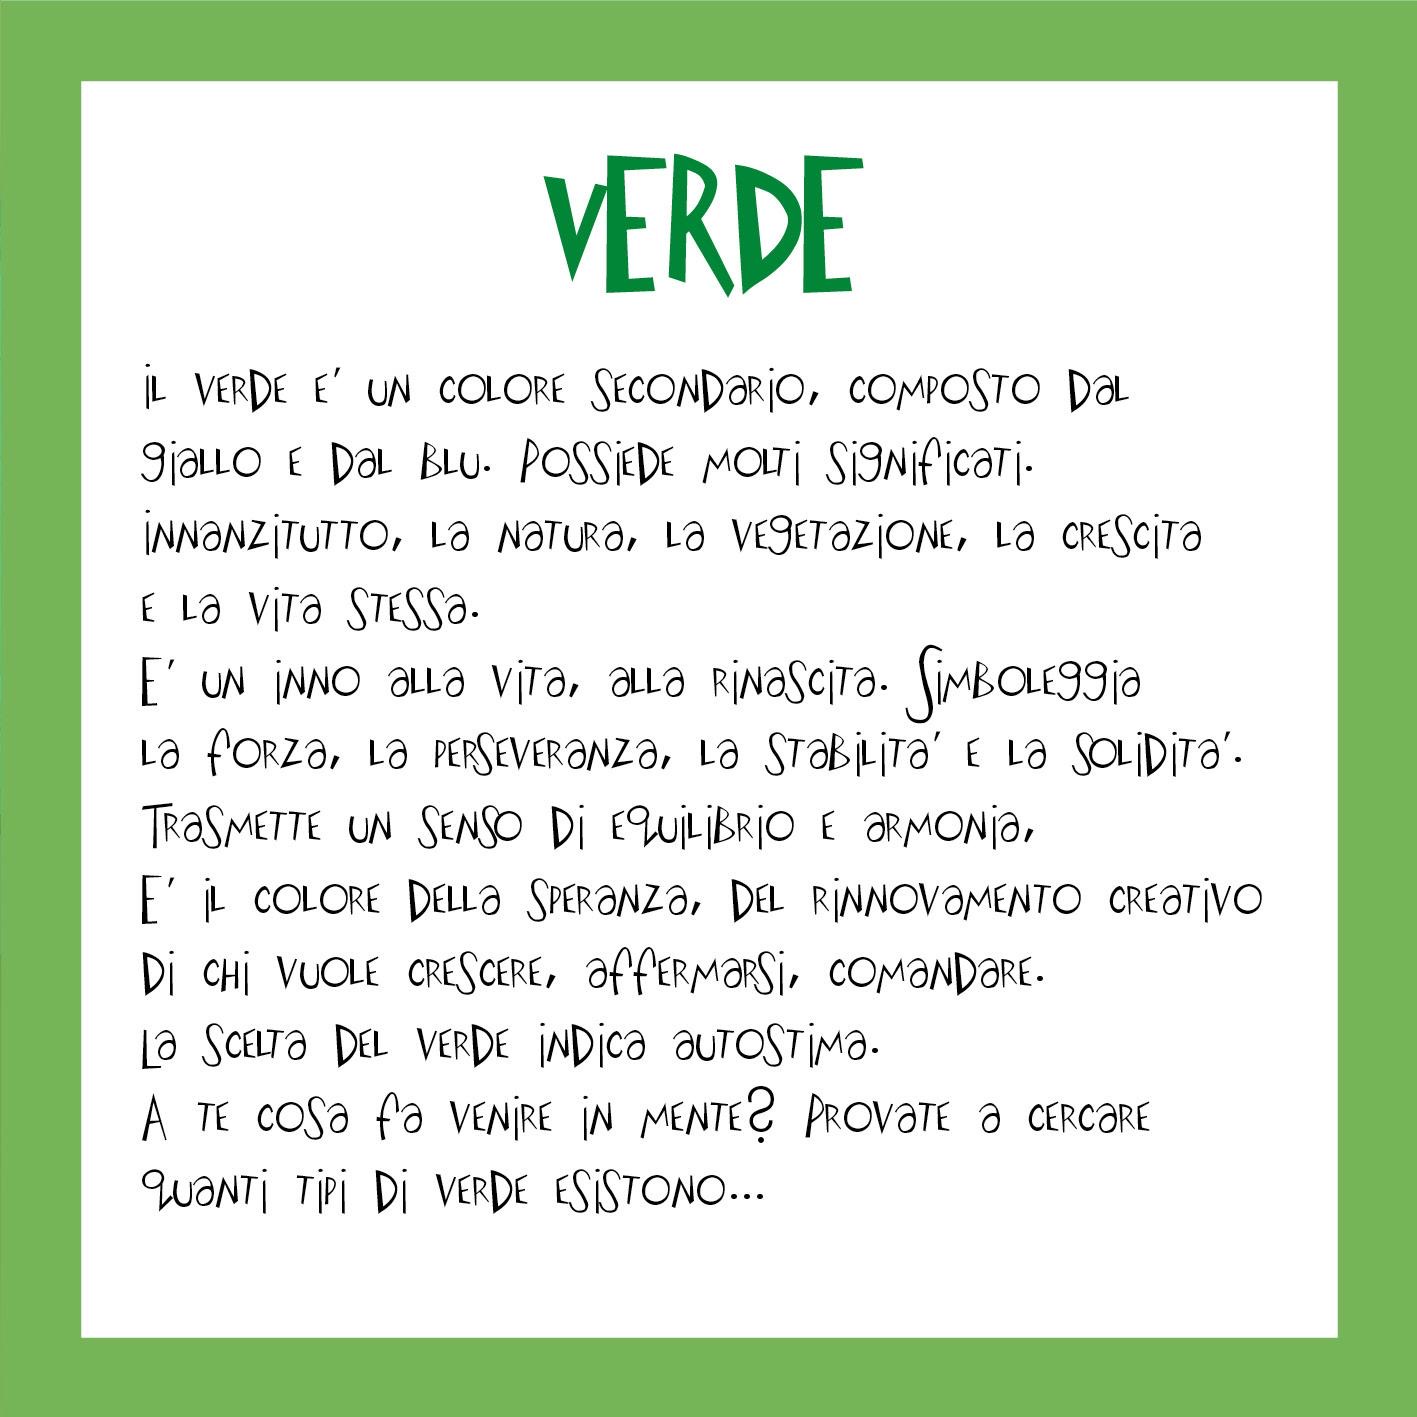 VERDE
il verde e' un colore secondario, composto dal
giallo e dal blu. Possiede molti significati.
innanzitutto, la natura, la vegetazione, la crescita
e la vita stessa.
E' un inno alla vita, alla rinascita. Simboleggia
la forza, la perseveranza, la stabilita' e la solidita'.
Trasmette un senso di equilibrio e armonia,
E' il colore della speranza, del rinnovamento creativo
di chi vuole crescere, affermarsi, comandare.
La scelta del verde indica autostima.
A te cosa fa venire in mente? Provate a cercare
quanti tipi di verde esistono...